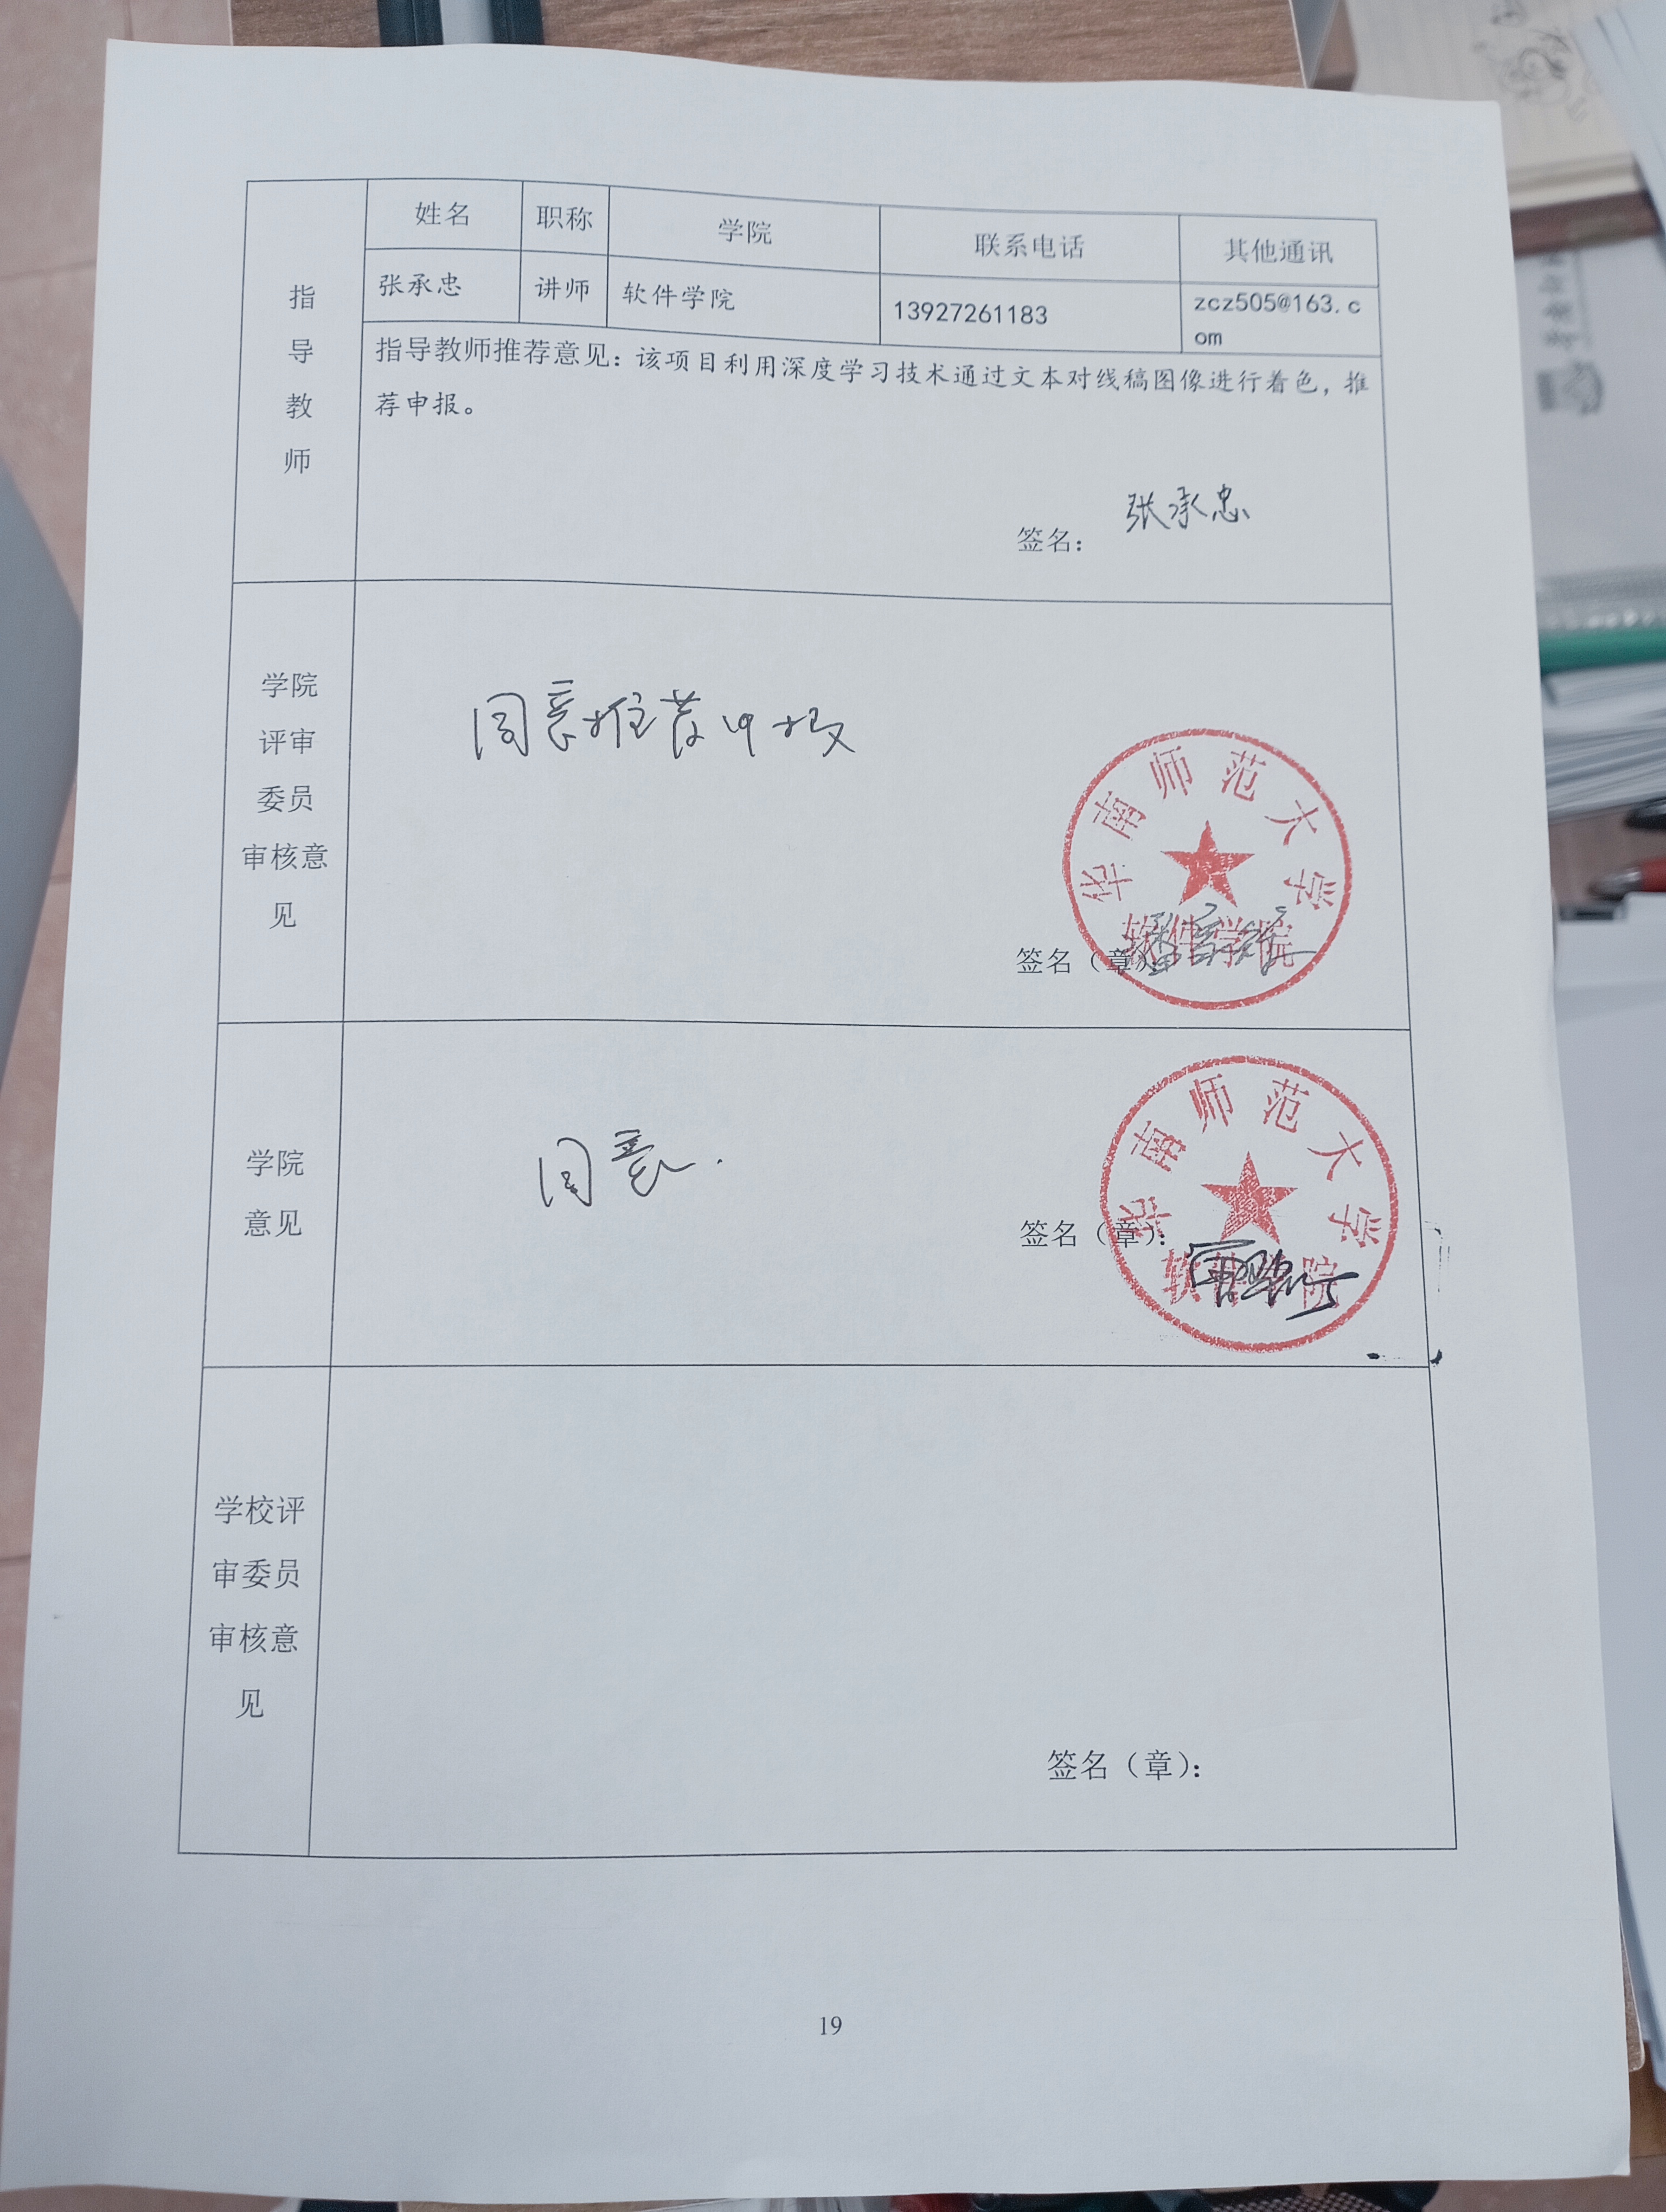 指
导
教
师
姓名 职称 学院 联系电话 其他通讯
张承忠 讲师 软件学院 13927261183 zcz505@163.c
om
指导教师推荐意见：该项目利用深度学习技术通过文本对线稿图像进行着色，推
荐申报。
签名： 张承忠
学院
评审
委员
审核意
见
同意推荐申报
华南师范大学
软件学院
签名（章）：
学院
意见
同意.
华南师范大学
软件学院
签名（章）：
学校评
审委员
审核意
见
签名（章）：
19